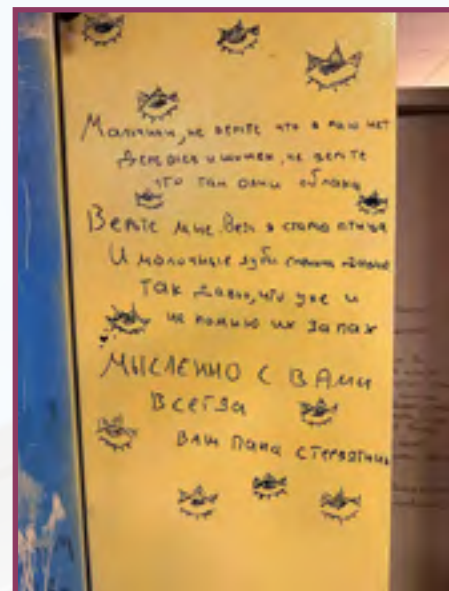 Мальчики, не верьте что в раю нет
деревьев и шишек, не верьте
что там одни облака
Верьте мне, ведь я старая птица
И молочные зубы сменила давно
Так давно, что уже и
не помню их запах
МЫСЛЕННО С ВАМИ
ВСЕГДА
ВАШ ПАПА СТЕРВЯТНИК